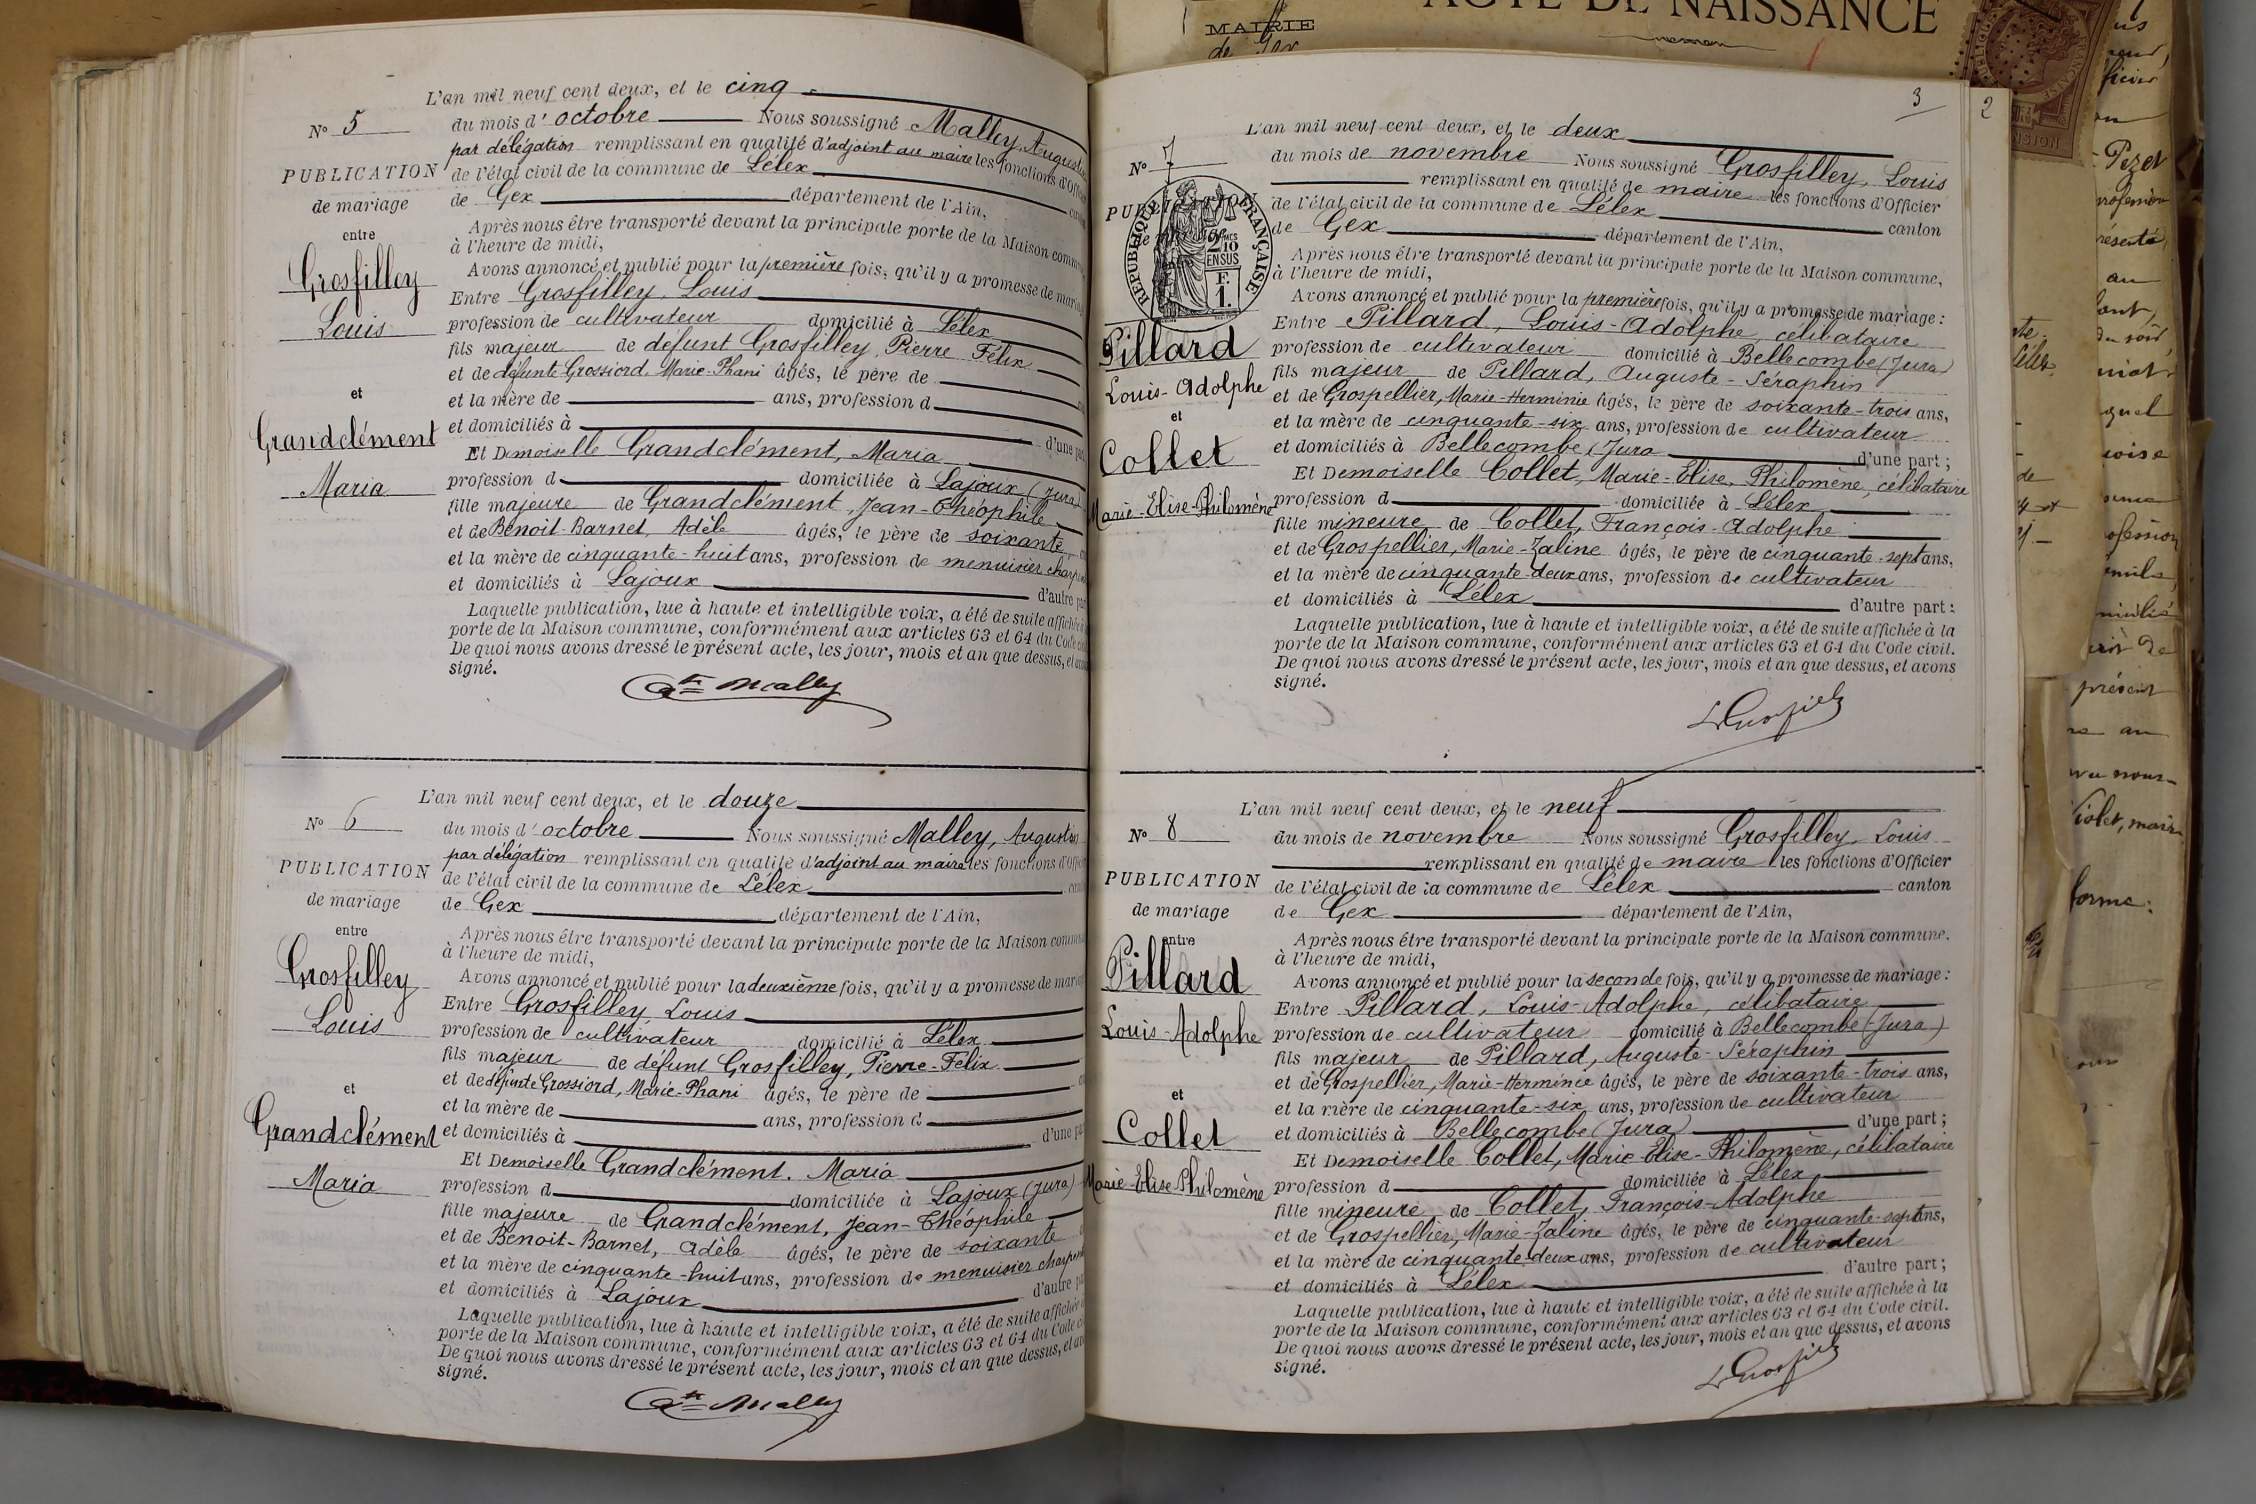 ACTE DE NAISSANCE
MAIRIE
de Gex
L'an mil neuf cent deux, et le cinq
N° 5
du mois d'octobre Nous soussigné Malley, Augustin
par délégation remplissant en qualité d'adjoint au maire les fonctions d'Offi
PUBLICATION
de l'état civil de la commune de Lélex
de mariage
de Gex département de l'Ain,
entre
Après nous être transporté devant la principale porte de la Maison commu
à l'heure de midi,
Grosfilley
Avons annoncé et publié pour la première fois, qu'il y a promesse de maria
Entre Grosfilley, Louis
Louis
profession de cultivateur domicilié à Lélex
fils majeur de défunt Grosfilley, Pierre Félix
et de défunte Grossiord, Marie-Phani âgés, le père de
et
et la mère de ans, profession d
et domiciliés à d'une part
Grandclément
Et Demoiselle Grandclément, Maria
Maria
profession d domiciliée à Lajoux (Jura)
fille majeure de Grandclément, Jean-Théophile
et de Benoit-Barnet, Adèle âgés, le père de soixante
et la mère de cinquante-huit ans, profession de menuisier charpen
et domiciliés à Lajoux d'autre part
Laquelle publication, lue à haute et intelligible voix, a été de suite affichée à
porte de la Maison commune, conformément aux articles 63 et 64 du Code ci
De quoi nous avons dressé le présent acte, les jour, mois et an que dessus, et avons
signé.
Atin Malley
L'an mil neuf cent deux, et le douze
N° 6
du mois d'octobre Nous soussigné Malley, Augustin
par délégation remplissant en qualité d'adjoint au maire les fonctions d'Offi
PUBLICATION
de l'état civil de la commune de Lélex can
de mariage
de Gex département de l'Ain,
entre
Après nous être transporté devant la principale porte de la Maison commu
à l'heure de midi,
Grosfilley
Avons annoncé et publié pour la deuxième fois, qu'il y a promesse de maria
Entre Grosfilley Louis
Louis
profession de cultivateur domicilié à Lélex
fils majeur de défunt Grosfilley, Pierre-Félix
et de défunte Grossiord, Marie-Phani âgés, le père de
et
et la mère de ans, profession d
Grandclément
et domiciliés à d'une pa
Et Demoiselle Grandclément. Maria
Maria
profession d domiciliée à Lajoux (Jura)
fille majeure de Grandclément, Jean-Théophile
et de Benoit-Barnet, Adèle âgés, le père de soixante
et la mère de cinquante-huit ans, profession de menuisier charpen
et domiciliés à Lajoux d'autre pa
Laquelle publication, lue à haute et intelligible voix, a été de suite affichée
porte de la Maison commune, conformément aux articles 63 et 64 du Code c
De quoi nous avons dressé le présent acte, les jour, mois et an que dessus, et av
signé.
Atin Malley
3
2
L'an mil neuf cent deux, et le deux
N° 7
du mois de novembre Nous soussigné Grosfilley, Louis
remplissant en qualité de maire les fonctions d'Officier
PUBLICATION
de l'état civil de la commune de Lélex canton
de mariage
de Gex département de l'Ain,
REPUBLIQUE FRANÇAISE
2/10
EN SUS
F.
1.
Après nous être transporté devant la principale porte de la Maison commune,
à l'heure de midi,
Avons annoncé et publié pour la première fois, qu'il y a promesse de mariage :
Entre Pillard, Louis-Adolphe célibataire
Pillard
profession de cultivateur domicilié à Bellecombe (Jura)
Louis-Adolphe
fils majeur de Pillard, Auguste-Séraphin
et de Grospellier, Marie-Herminie âgés, le père de soixante-trois ans,
et
et la mère de cinquante-six ans, profession de cultivateur
Collet
et domiciliés à Bellecombe (Jura d'une part ;
Et Demoiselle Collet, Marie-Elise, Philomène, célibataire
Marie-Elise-Philomène
profession d domiciliée à Lélex
fille mineure de Collet, François-Adolphe
et de Grospellier, Marie-Zaline âgés, le père de cinquante-sept ans,
et la mère de cinquante-deux ans, profession de cultivateur
et domiciliés à Lélex d'autre part :
Laquelle publication, lue à haute et intelligible voix, a été de suite affichée à la
porte de la Maison commune, conformément aux articles 63 et 64 du Code civil.
De quoi nous avons dressé le présent acte, les jour, mois et an que dessus, et avons
signé.
L'an mil neuf cent deux, et le neuf
N° 8
du mois de novembre Nous soussigné Grosfilley, Louis
remplissant en qualité de maire les fonctions d'Officier
PUBLICATION
de l'état civil de la commune de Lélex canton
de mariage
de Gex département de l'Ain,
entre
Après nous être transporté devant la principale porte de la Maison commune.
à l'heure de midi,
Pillard
Avons annoncé et publié pour la seconde fois, qu'il y a promesse de mariage :
Entre Pillard, Louis-Adolphe, célibataire
Louis-Adolphe
profession de cultivateur domicilié à Bellecombe (Jura)
fils majeur de Pillard, Auguste-Séraphin
et de Grospellier, Marie-Herminie âgés, le père de soixante-trois ans,
et
et la mère de cinquante-six ans, profession de cultivateur
Collet
et domiciliés à Bellecombe (Jura) d'une part ;
Et Demoiselle Collet, Marie-Elise-Philomène, célibataire
Marie-Elise-Philomène
profession d domiciliée à Lélex
fille mineure de Collet, François-Adolphe
et de Grospellier, Marie-Zaline âgés, le père de cinquante-sept ans,
et la mère de cinquante-deux ans, profession de cultivateur
et domiciliés à Lélex d'autre part ;
Laquelle publication, lue à haute et intelligible voix, a été de suite affichée à la
porte de la Maison commune, conformément aux articles 63 et 64 du Code civil.
De quoi nous avons dressé le présent acte, les jour, mois et an que dessus, et avons
signé.
Pezet
au
présent
forme: